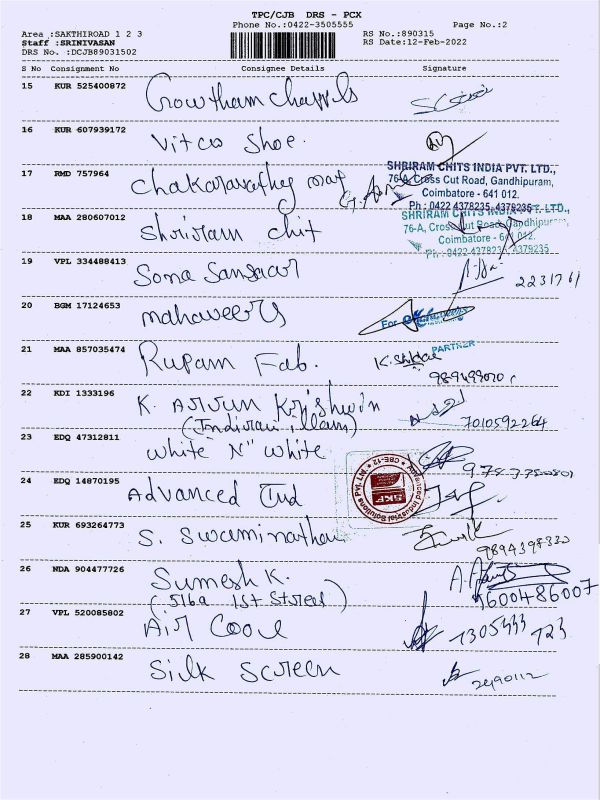 TPC/CJB DRS - PCX
Phone No.:0422-3505555 Page No.:2
Area :SAKTHIROAD 1 2 3 RS No.:890315
Staff :SRINIVASAN RS Date:12-Feb-2022
DRS No. :DCJB89031502
S No Consignment No Consignee Details Signature
15 KUR 525400872 Gowtham Chappels
16 KUR 607939172 Vitco Shoe.
17 RMD 757964 Chakaravathy
SHRIRAM CHITS INDIA PVT. LTD.,
76-A, Cross Cut Road, Gandhipuram,
Coimbatore - 641 012.
Ph : 0422 4378235, 4379235
18 MAA 280607012 Shriram chit
SHRIRAM CHITS INDIA PVT. LTD.,
76-A, Cross Cut Road, Gandhipuram,
Coimbatore - 641 012.
Ph : 0422 4378235, 4379235
19 VPL 334488413 Soma
20 BGM 17124653 mahaveers
For
PARTNER
21 MAA 857035474 Rupam Fab.
22 KDI 1333196 K. Arjun Krishnan 7010592264
23 EDQ 47312811 White "N" White
24 EDQ 14870195 Advanced Ind
Advanced Industrial Solutions Pvt. Ltd. CBE-12
SKF
25 KUR 693264773 S. Swaminathan
26 NDA 904477726 Sumesh K. 9600486007
27 VPL 520085802 Air Cool 7305333 723
28 MAA 285900142 Silk Screen